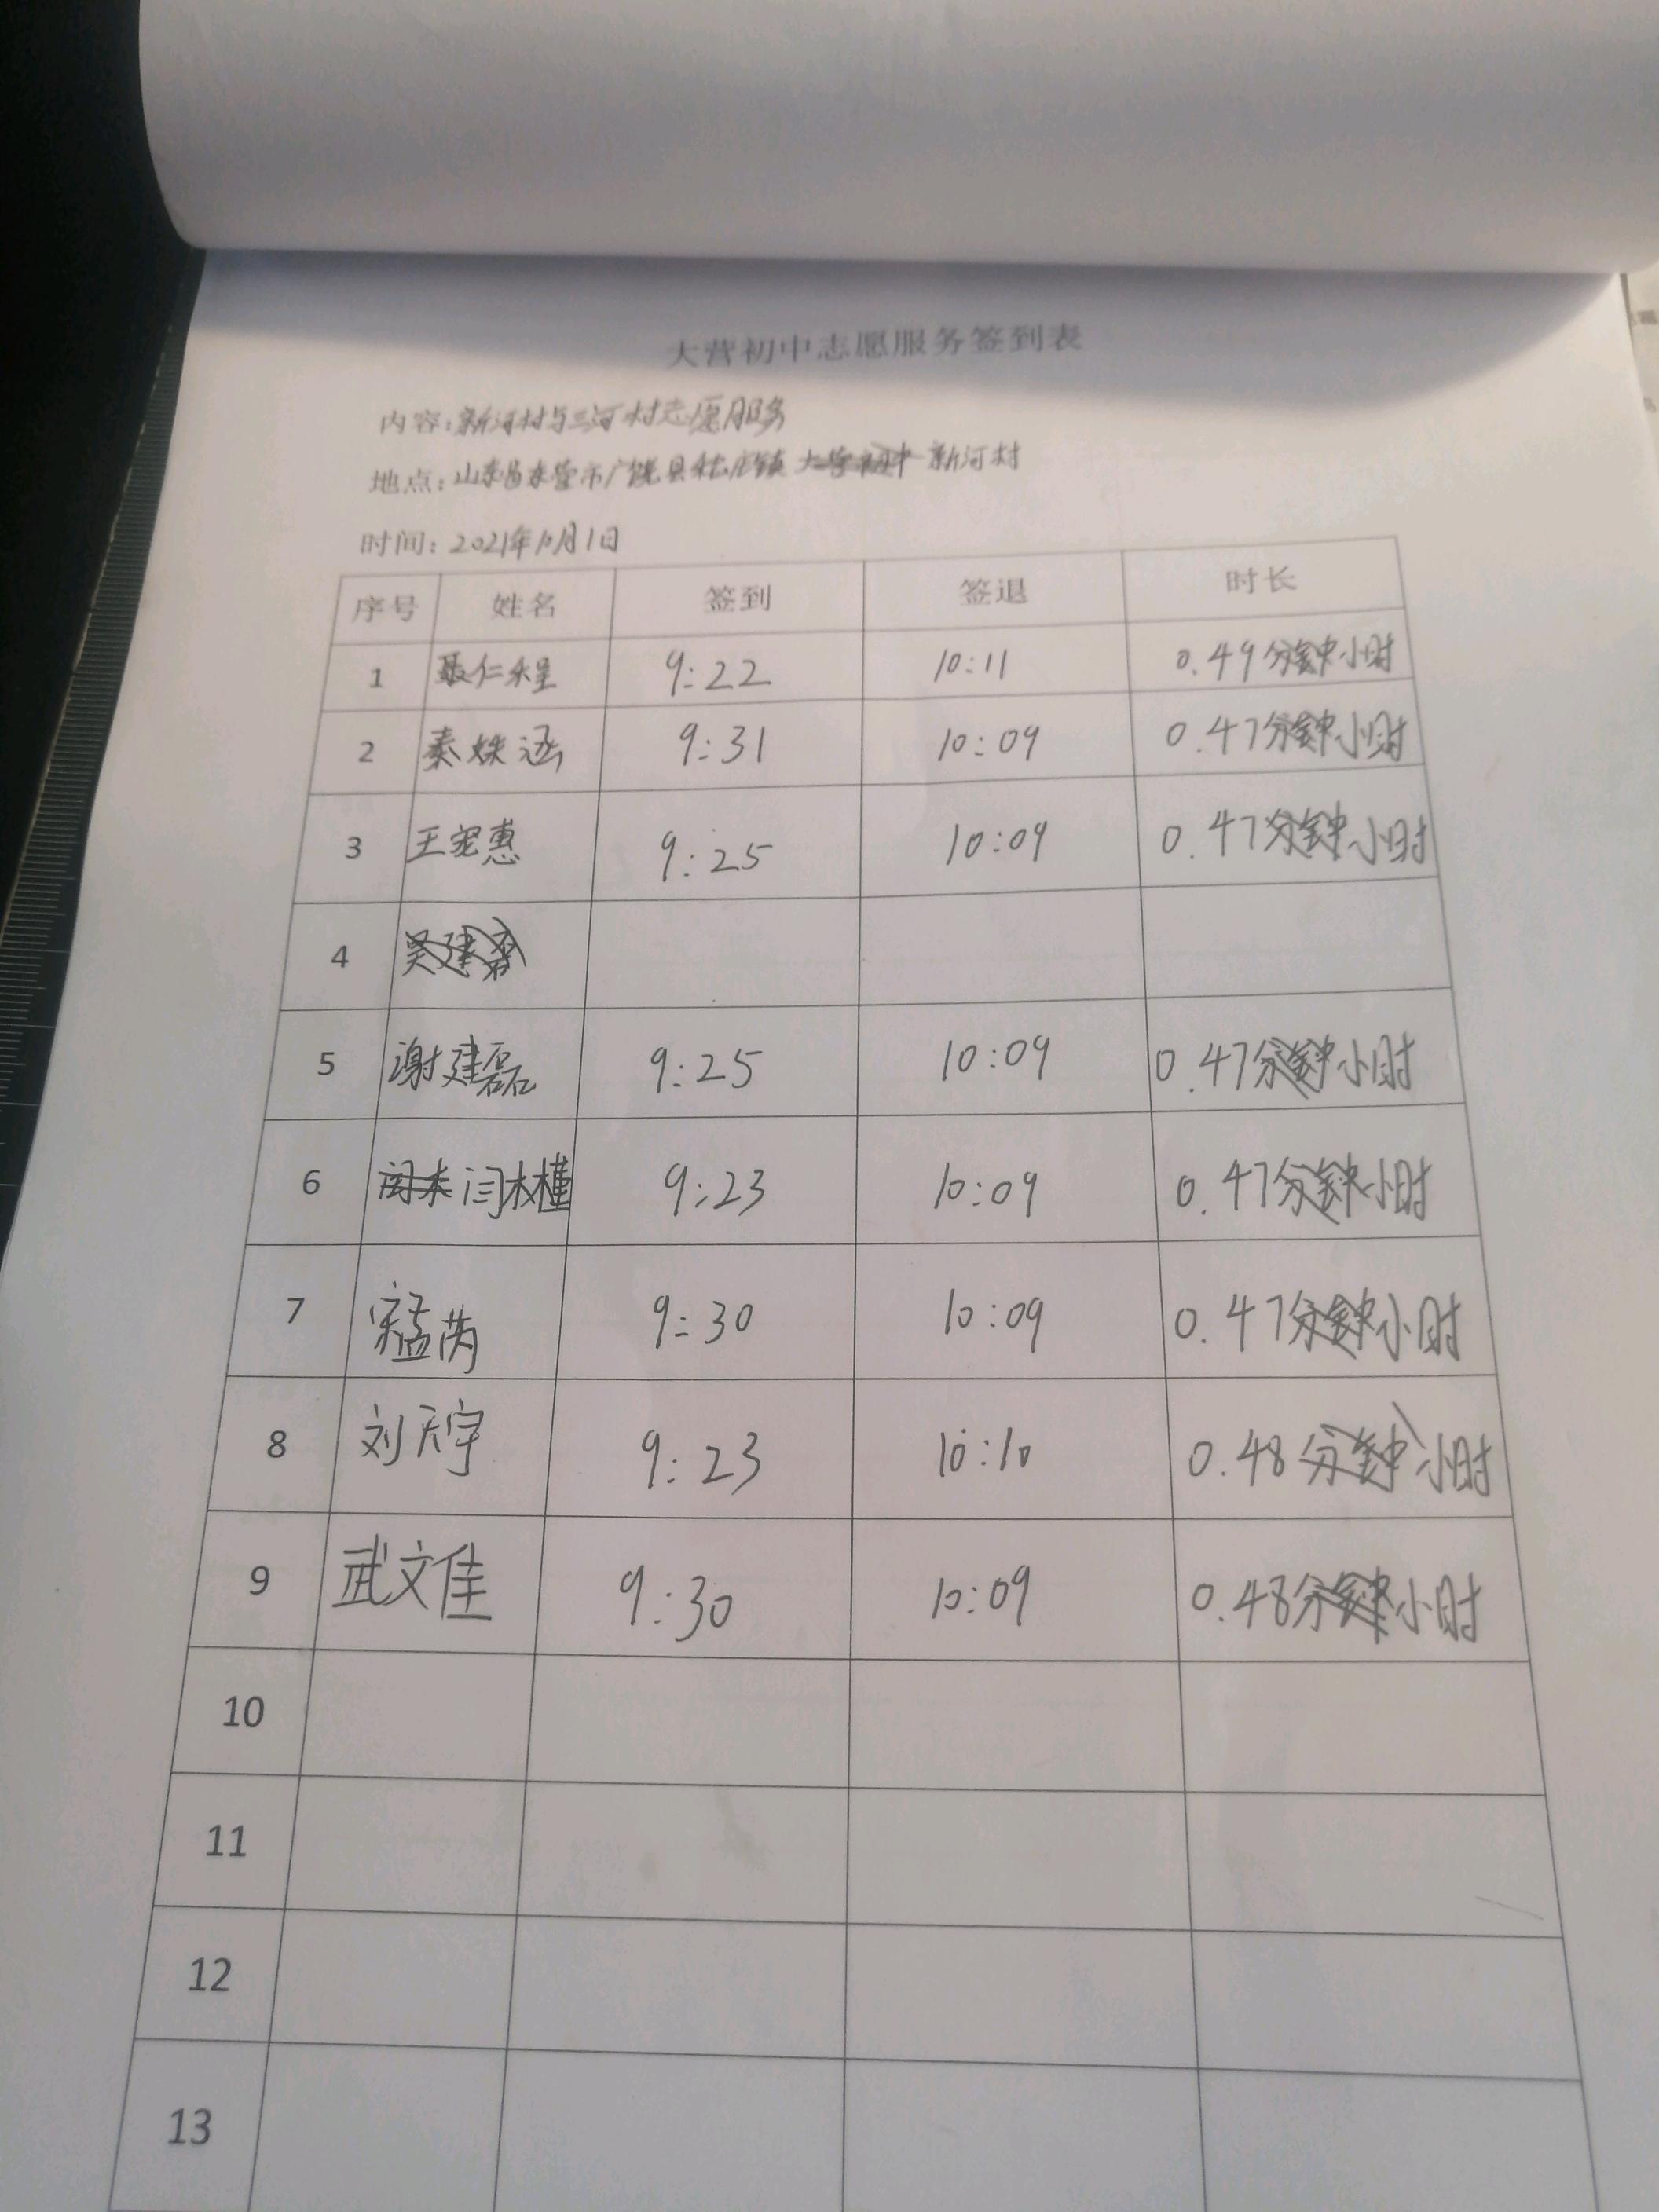 大营初中志愿服务签到表
内容：新河村与三河村志愿服务
地点：山东省东营市广饶县稻庄镇 大营初中 新河村
时间：2021年10月1日
序号 姓名 签到 签退 时长
1 聂仁 9:22 10:11 0.49分钟小时
2 秦 涵 9:31 10:09 0.47分钟小时
3 王宠惠 9:25 10:09 0.47分钟小时
4 吴建
5 谢建磊 9:25 10:09 0.47分钟小时
6 闫木槿 9:23 10:09 0.47分钟小时
7 宋孟芮 9:30 10:09 0.47分钟小时
8 刘天宇 9:23 10:10 0.48分钟小时
9 武文佳 9:30 10:09 0.48分钟小时
10
11
12
13